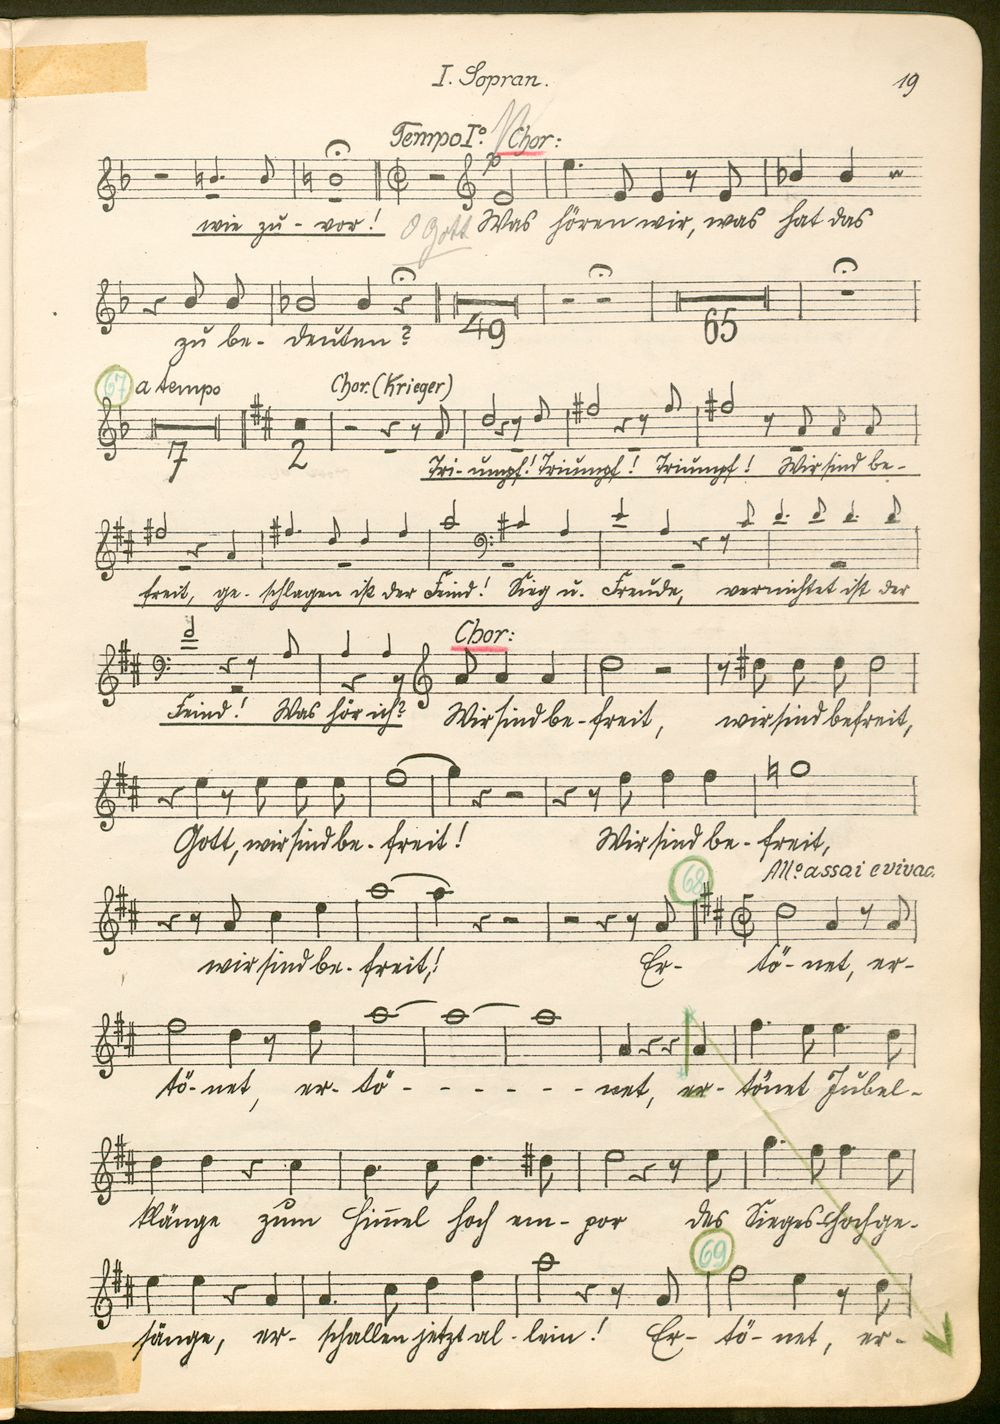 I. Sopran.
19
Tempo Iº. Chor:
p
wie zu - vor! O Gott Was hören wir, was hat das
zu be - deuten?
49 65
67 a tempo Chor. (Krieger)
7 2
Tri - umpf! Triumpf! Triumpf! Wir sind be -
freit, ge - schlagen ist der Feind! Sieg u. Freude, vernichtet ist der
Chor:
Feind! Was hör ich? Wir sind be - freit, wir sind befreit,
Gott, wir sind be - freit! Wir sind be - freit,
68 Allº assai e vivac.
wir sind be - freit! Er - tö - net, er -
tö - net, er - tö - - - - - - net, er - tönet Jubel -
klänge zum Him̄el hoch em - por des Sieges Hochge -
69
sänge, er - schallen jetzt al - lein! Er - tö - net, er -